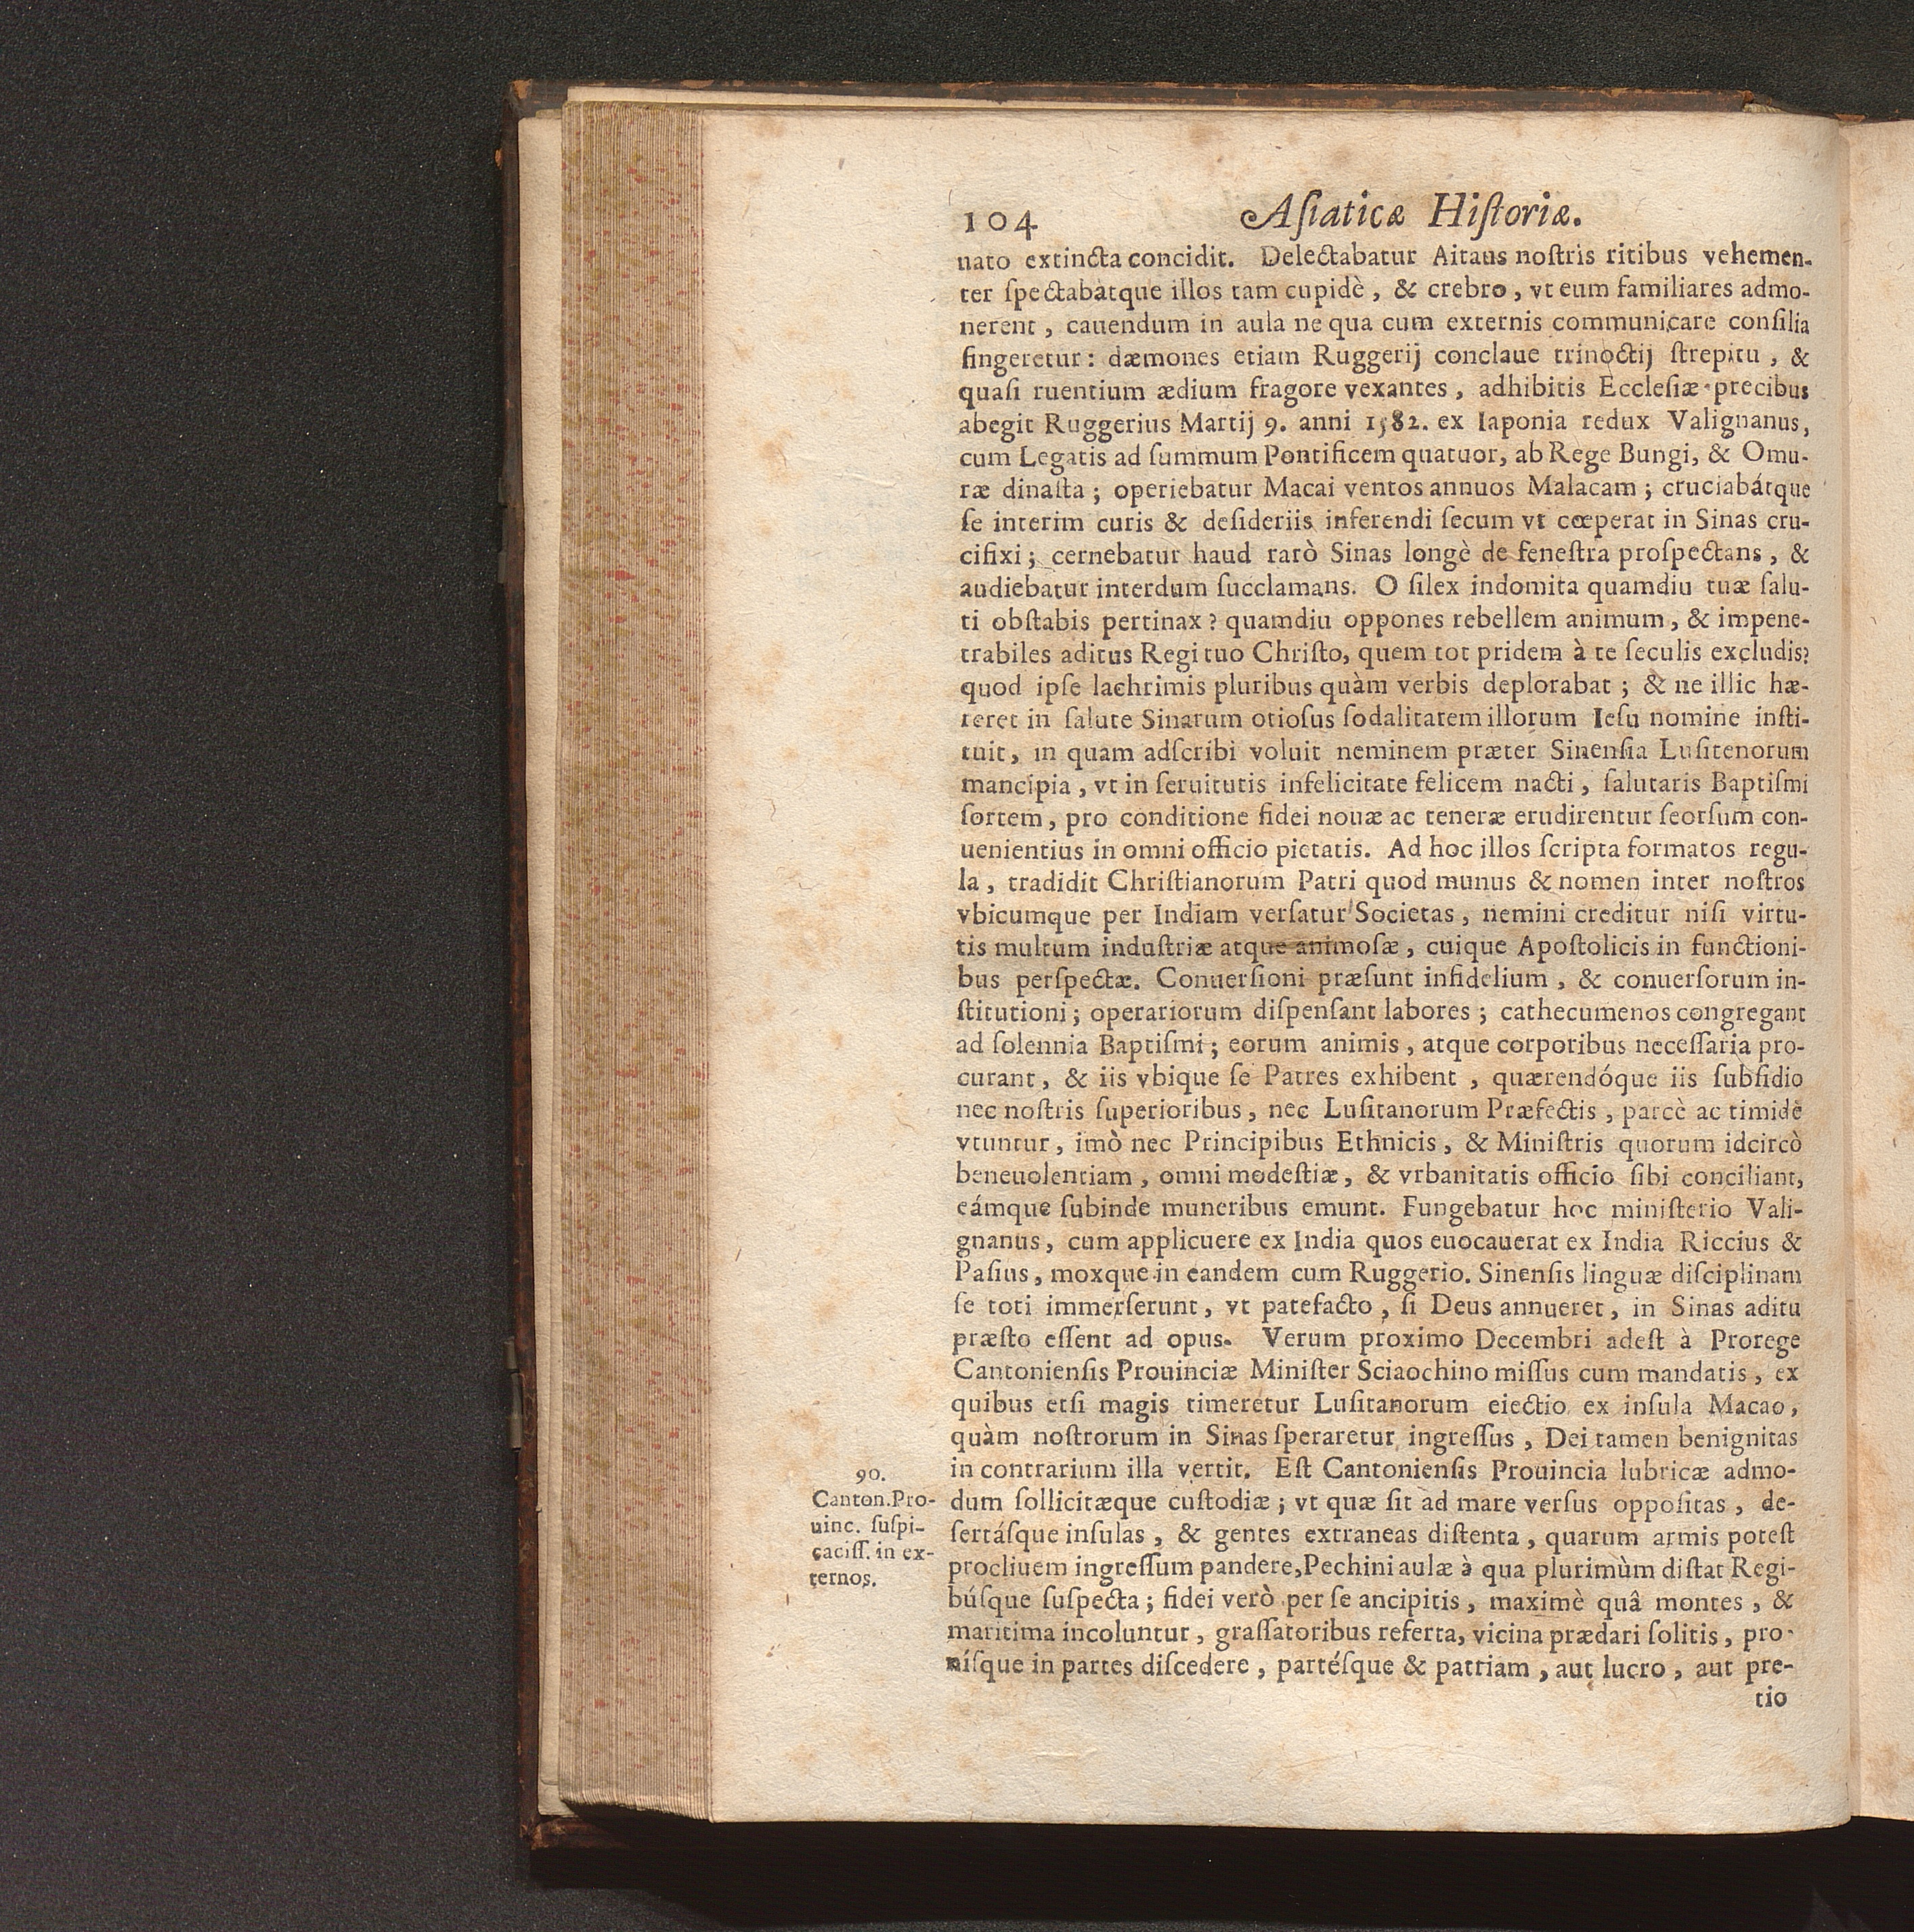 104 Aſiaticæ Hiſtoriæ.
nato extincta concidit. Delectabatur Aitaus noſtris ritibus vehemen-
ter ſpectabatque illos tam cupidè, & crebro, vt eum familiares admo-
nerent, cauendum in aula ne qua cum externis communicare conſilia
fingeretur: dæmones etiam Ruggerij conclaue trinoctij ſtrepitu, &
quaſi ruentium ædium fragore vexantes, adhibitis Eccleſiæ precibus
abegit Ruggerius Martij 9. anni 1582. ex Iaponia redux Valignanus,
cum Legatis ad ſummum Pontificem quatuor, ab Rege Bungi, & Omu-
ræ dinaſta; operiebatur Macai ventos annuos Malacam; cruciabátque
ſe interim curis & deſideriis inferendi ſecum vt cœperat in Sinas cru-
cifixi; cernebatur haud rarò Sinas longè de feneſtra proſpectans, &
audiebatur interdum ſucclamans. O ſilex indomita quamdiu tuæ ſalu-
ti obſtabis pertinax? quamdiu oppones rebellem animum, & impene-
trabiles aditus Regi tuo Chriſto, quem tot pridem à te ſeculis excludis?
quod ipſe lachrimis pluribus quàm verbis deplorabat; & ne illic hæ-
reret in ſalute Sinarum otioſus ſodalitatem illorum Ieſu nomine inſti-
tuit, in quam adſcribi voluit neminem præter Sinenſia Luſitenorum
mancipia, vt in ſeruitutis infelicitate felicem nacti, ſalutaris Baptiſmi
ſortem, pro conditione fidei nouæ ac teneræ erudirentur ſeorſum con-
uenientius in omni officio pietatis. Ad hoc illos ſcripta formatos regu-
la, tradidit Chriſtianorum Patri quod munus & nomen inter noſtros
vbicumque per Indiam verſatur Societas, nemini creditur niſi virtu-
tis multum induſtriæ atque animoſæ, cuique Apoſtolicis in functioni-
bus perſpectæ. Conuerſioni præſunt infidelium, & conuerſorum in-
ſtitutioni; operariorum diſpenſant labores; cathecumenos congregant
ad ſolennia Baptiſmi; eorum animis, atque corporibus neceſſaria pro-
curant, & iis vbique ſe Patres exhibent, quærendóque iis ſubſidio
nec noſtris ſuperioribus, nec Luſitanorum Præfectis, parcè ac timidè
vtuntur, imò nec Principibus Ethnicis, & Miniſtris quorum idcircò
beneuolentiam, omni modeſtiæ, & vrbanitatis officio ſibi conciliant,
eámque ſubinde muneribus emunt. Fungebatur hoc miniſterio Vali-
gnanus, cum applicuere ex India quos euocauerat ex India Riccius &
Paſius, moxque in eandem cum Ruggerio. Sinenſis linguæ diſciplinam
ſe toti immerſerunt, vt patefacto, ſi Deus annueret, in Sinas aditu
præſto eſſent ad opus. Verum proximo Decembri adeſt à Prorege
Cantonienſis Prouinciæ Miniſter Sciaochino miſſus cum mandatis, ex
quibus etſi magis timeretur Luſitanorum eiectio ex inſula Macao,
quàm noſtrorum in Sinas ſperaretur ingreſſus, Dei tamen benignitas
in contrarium illa vertit. Eſt Cantonienſis Prouincia lubricæ admo-
dum ſollicitæque cuſtodiæ; vt quæ ſit ad mare verſus oppoſitas, de-
ſertáſque inſulas, & gentes extraneas diſtenta, quarum armis poteſt
procliuem ingreſſum pandere, Pechini aulæ à qua plurimùm diſtat Regi-
búſque ſuſpecta; fidei verò per ſe ancipitis, maximè quâ montes, &
maritima incoluntur, graſſatoribus referta, vicina prædari ſolitis, pro-
níſque in partes diſcedere, partéſque & patriam, aut lucro, aut pre-
tio
90.
Canton.Pro-
uinc. ſuſpi-
caciſſ. in ex-
ternos.